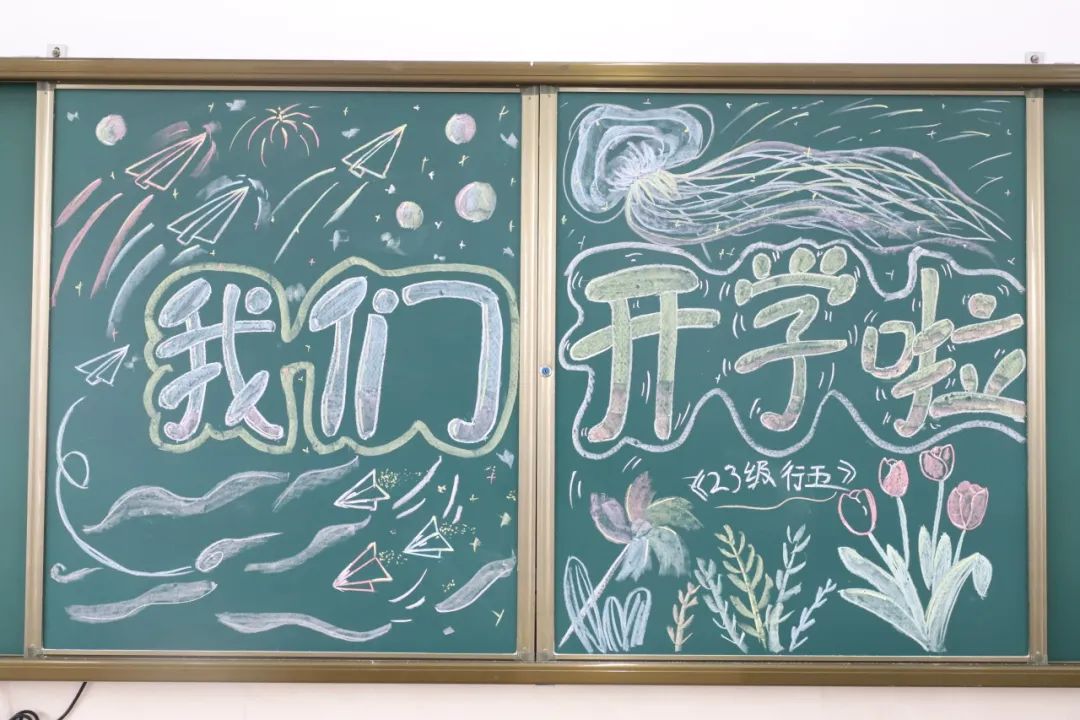 我们开学啦
《23级行五》